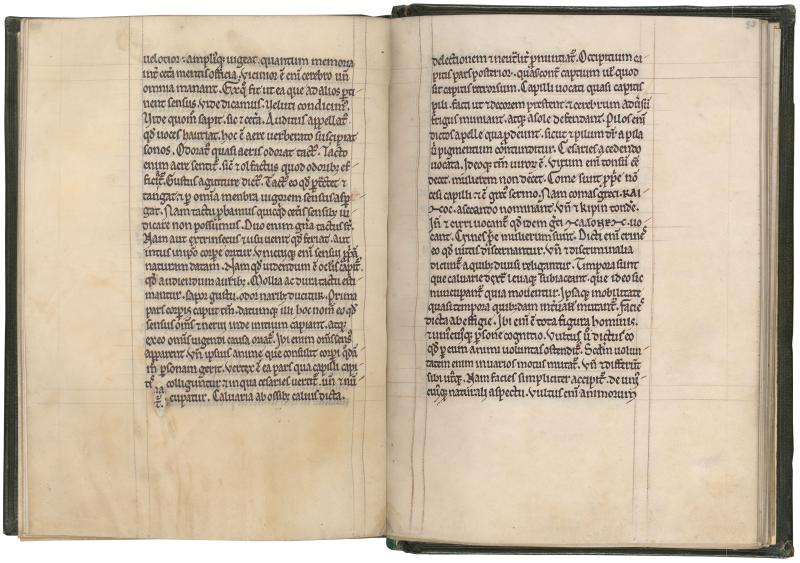 uelotior ⁊ amplius uigeat. quantum memoria
int̄ cet̄a mentis officia. Vicinior ē eni᷒ cerebro un̄
omnia manant. Ex q̊ fit ut ea que ad alios p̱ti
nent sensus. uide dicamus. Veluti condicim᷒.
Vide quom̊ sapit. sic ⁊ cet̄a. Auditus appellat᷒.
qđ uoces hauriat. hoc ē aere uerberato suscipiat
sonos. Odorat᷒ quasi aeris odorat tact᷒. Tacto
enim aere sentit᷒. sic̄ ⁊ olfactus quod odoribꝫ ef
ficit᷒. Gustus a gutture dict᷒. Tact᷒ eo qđ p̱tractet ⁊
tangat. ⁊ p̱ om̄ia menbra uigorem sensus asp̱
gat. Nam tactu p̱bamus quicqđ cet̄is sensibꝫ iu
dicare non possumus. Duo enim gn̄a tactus st̄.
Nam aut extrinsecus ⁊ usu uenit qđ feriat. aut
intus in ip̄o corpe oritur. Vnicuiqꝫ eni᷒ sensui p̱p̱am
naturam datam. Nam qđ uidendum ē oclis capit᷒.
qđ audiendum auribꝫ. Mollia ac dura tactu esti
mantur. sapor gustu. odor naribꝫ ducitur. Prima
pars corpis caput
sensus om̄s ⁊ nerui inde initium capiant. atqꝫ
ex eo omnis uigendi causa oriat᷒. Ibi enim om̄s sens᷒
apparent. Vn̄ ipsius anime que consulit corpi q̊dā
m̊ p̱sonam gerit. Vertex ē ea pars qua capilli capi
tis colliguntur ⁊ in qua cesaries uertit᷒. un̄ ⁊ nū
cupatur. Caluaria ab ossibꝫ caluis dicta.
Occipitium ca
pitis pars posterior. quasi cont̄ capitium uel quod
sit capitis retrorsum. Capilli uocati quasi capitis
pili. facti ut ⁊ decorem prestent ⁊ cerebrum aduersū
frigus muniant. atqꝫ a sole defendant. Pilos eni᷒
dictos a pelle qua p̱deunt. sicut ⁊ pilum dr̄ a pila
u̇ pigmentum contunditur. Cesaries a cedendo
uocata. Ideoqꝫ tm̄ uiror᷒ ē. Virum eni᷒ tonsū eē
decet. mulierem non decet. Come sunt p̱p̱e nō
cesi capilli ⁊ ē grec᷒ sermo. Nam comas greci. KAI
a secando nominant. Vn̄ ⁊ kipin tonde᷒.
In̄ ⁊ cirri uocant᷒ qđ idem g̊ci uo
cant. Crines p̱pe mulierum sunt. Dicti eni᷒ crines
eo qđ uittis discernantur. Vn̄ ⁊ discriminalia
dicunt᷒ a quibꝫ diuisi religantur. Timpora sunt
que caluarie dext᷒ leuaqꝫ subiacent. que ideo sic
nuncupant᷒ quia mouentur. Ipsaqꝫ mobilitate
quasi tempora quibꝫdam int̄uallis mutant᷒. Facies
dicta ab effigie. Ibi eni᷒ ē tota figura hominis.
⁊ uniuscuiusqꝫ p̱sone cognitio. Vultus u̇ dictus eo
qđ p̱ eum animi uoluntas ostendit᷒. Sc̄d̄m uolun
tatem enim in uarios motus mutat᷒. Vn̄ ⁊ differunt
sibi ut᷒qꝫ. Nam facies simpliciter accipit᷒. de unius
cuiusqꝫ naturali aspectu. Vultus eni᷒ animorum